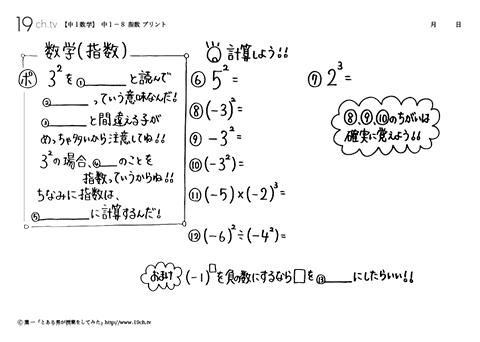 19ch.tv 【中1数学】 中1-8 指数 プリント 月 日
数学(指数)
ポ 3²を①______と読んで
②______っていう意味なんだ!
③______と間違える子が
めっちゃ多いから注意してね!!
3²の場合、④____のことを
指数っていうからね!!
ちなみに指数は、
⑤______に計算するんだ!
計算しよう!!
⑥ 5²=
⑦ 2³=
⑧ (-3)²=
⑨ -3²=
⑩ (-3²)=
⑪ (-5)×(-2)³=
⑫ (-6)²÷(-4²)=
⑧、⑨、⑩のちがいは
確実に覚えよう!!
おまけ (-1)□を負の数にするなら□を⑬______にしたらいい!!
© 葉一「とある男が授業をしてみた」http://www.19ch.tv